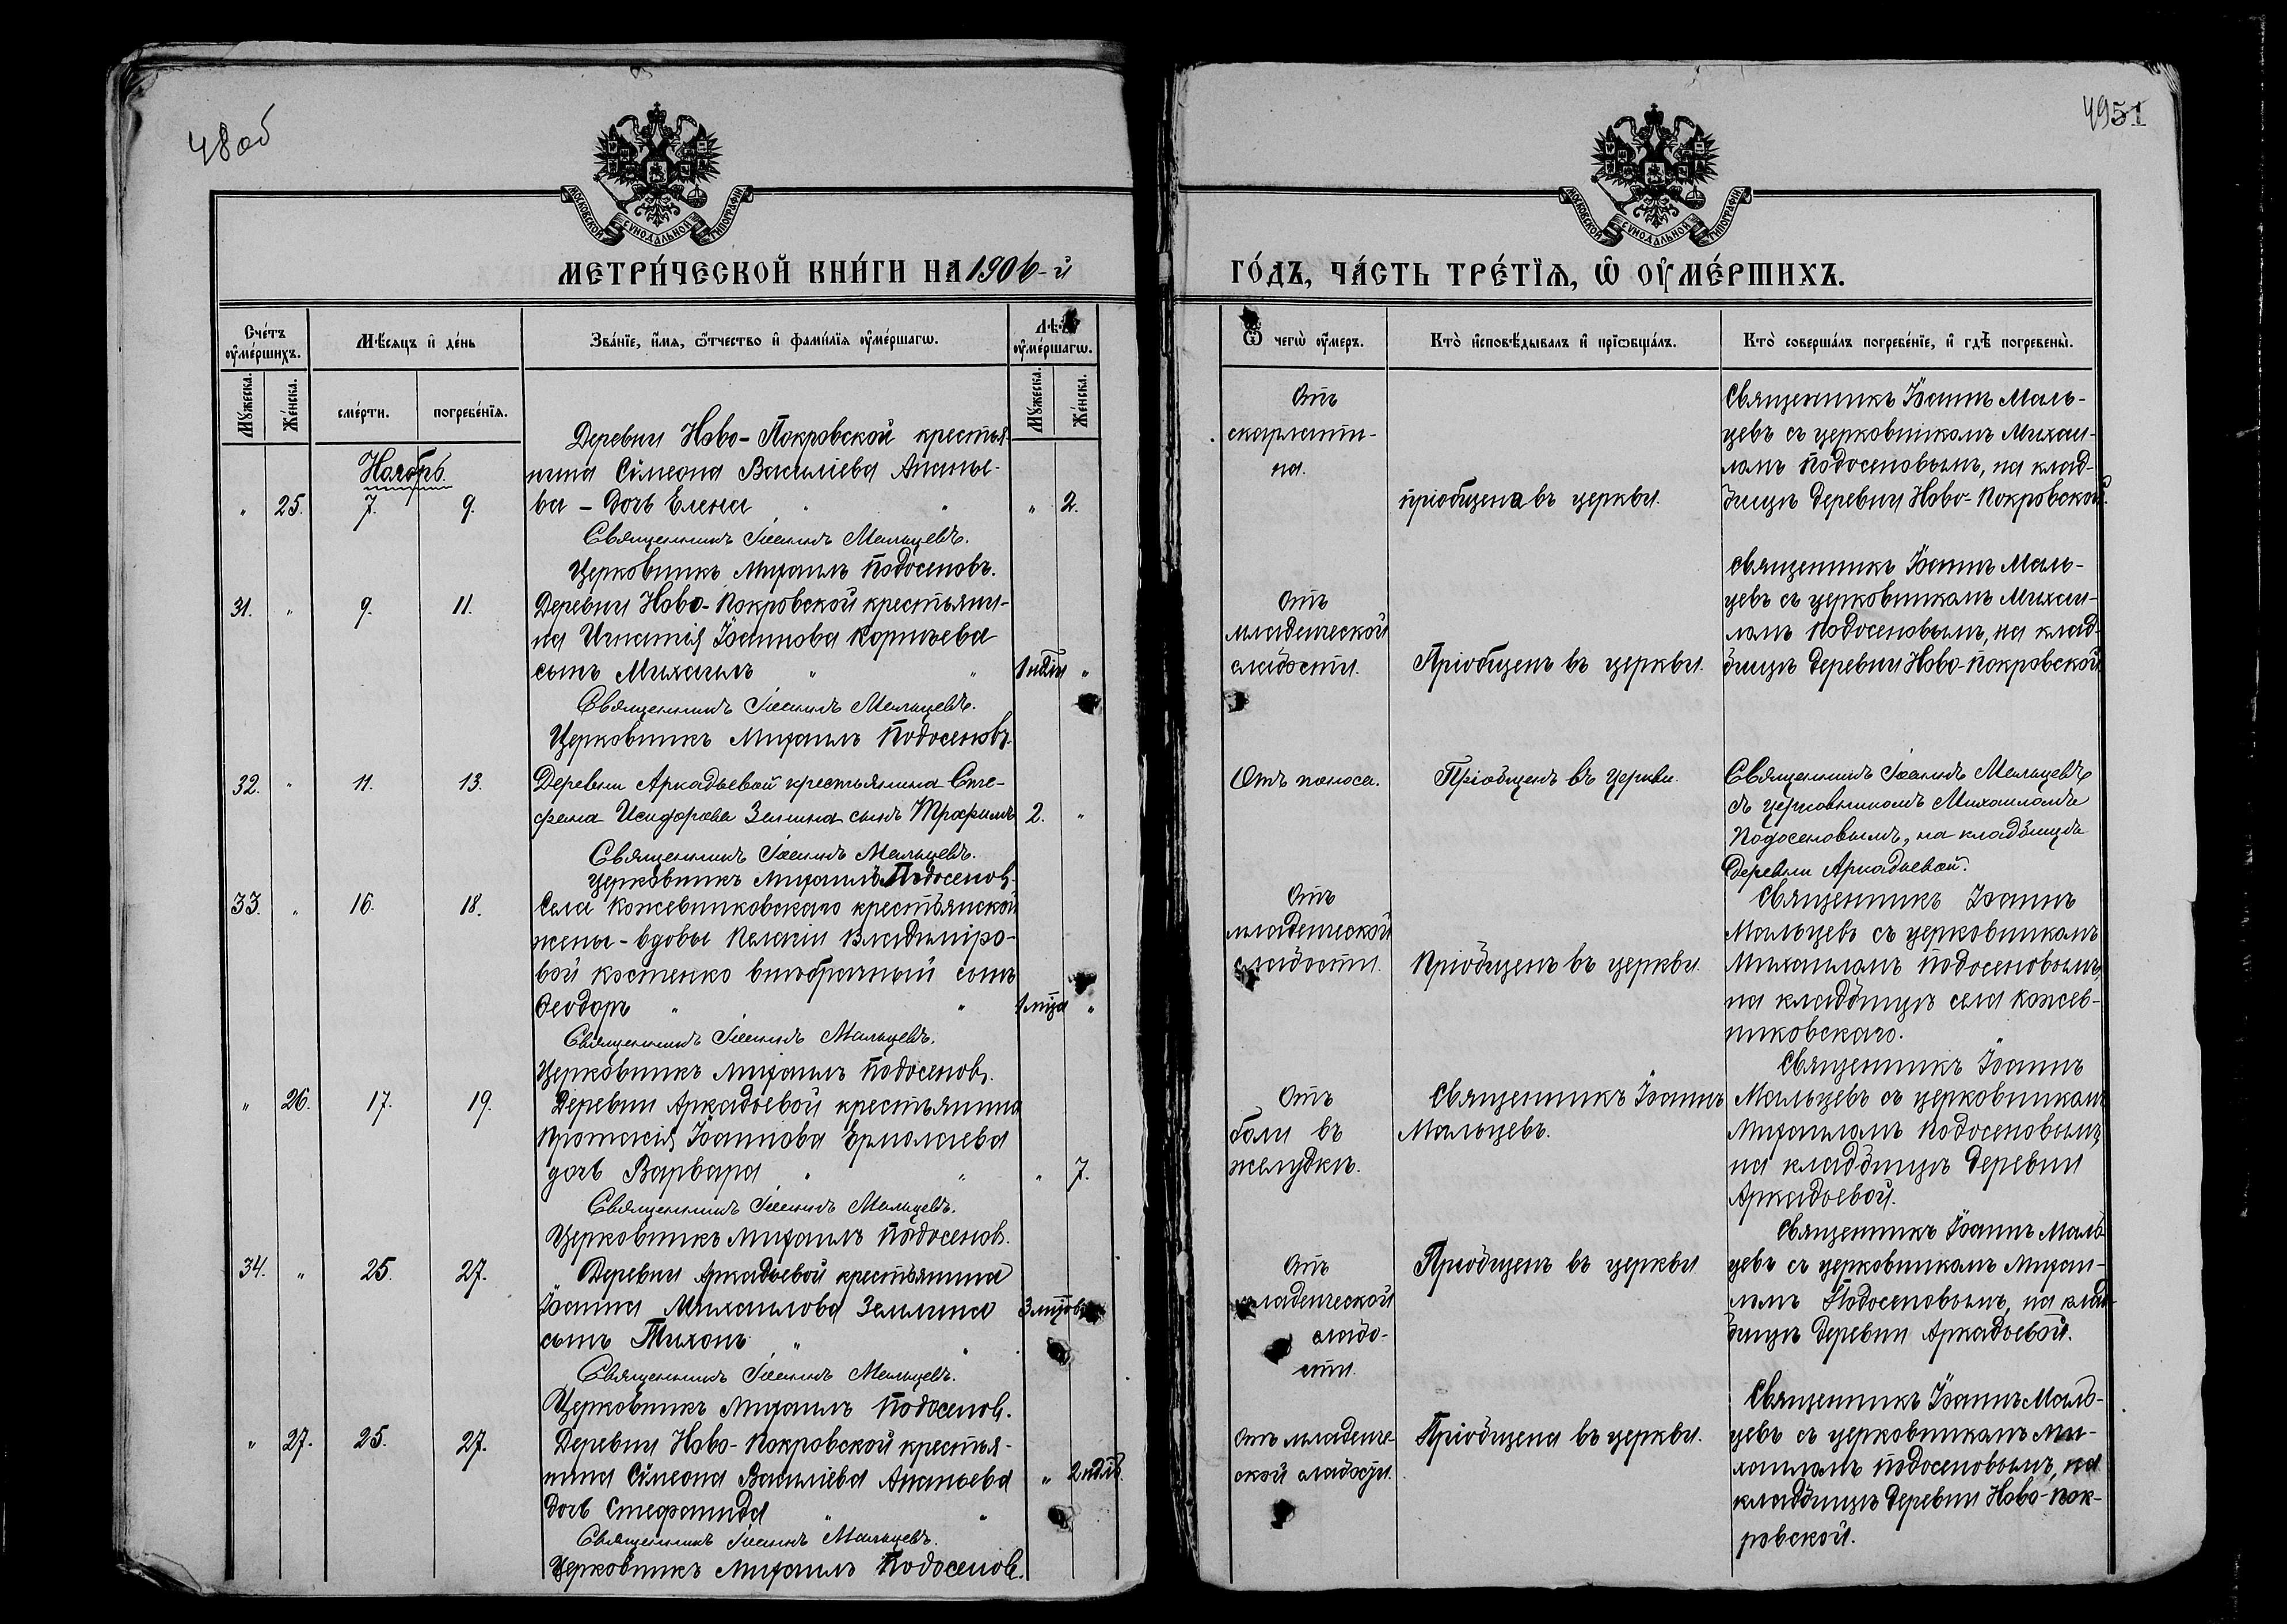 48 об
4951
МОСКОВСКОЙ СѴНОДАЛЬНОЙ ТИПОГРАФІИ
МОСКОВСКОЙ СѴНОДАЛЬНОЙ ТИПОГРАФІИ
МЕТРИ́ЧЕСКОЙ КНИ́ГИ НА 1906-й
ГО́ДЪ, ЧА́СТЬ ТРЕ́ТІѦ, Ѡ ОУ҆МЕ́РШИХЪ.
Счетъ оумершихъ.
Мѣсяцъ и день
Званїе, имя, ѿтчество и фамилїя оумершагѡ.
Лѣта оумершагѡ.
Мужеска.
Женска.
смерти.
погребенїя.
Мужеска.
Женска.
Ѿ чегѡ оумеръ.
Кто исповѣдывалъ и прїѡбщалъ.
Кто совершалъ погребенїе, и гдѣ погребены.
Ноябрь.
" 25. 7. 9.
Деревни Ново-Покровской крестья-
нина Сѵмеона Василіева Ананье-
ва - дочь Елена " " " 2.
Священникъ Іоаннъ Мальцевъ.
Церковникъ Михаилъ Подосеновъ.
Отъ
скарлати-
на.
пріобщена въ церкви.
Священникъ Іоаннъ Маль-
цевъ съ церковникомъ Михаи-
ломъ Подосеновымъ, на клад-
бищѣ деревни Ново-Покровской.
31. " 9. 11.
Деревни Ново-Покровской крестьяни-
на Игнатія Іоаннова Корнѣева
сынъ Михаилъ " " 1 ндѣли "
Священникъ Іоаннъ Мальцевъ.
Церковникъ Михаилъ Подосеновъ.
Отъ
младенческой
слабости.
Пріобщенъ въ церкви.
Священникъ Іоаннъ Маль-
цевъ съ церковникомъ Михаи-
ломъ Подосеновымъ, на клад-
бищѣ деревни Ново-Покровской
32. " 11. 13.
Деревни Аркадьевой крестьянина Сте-
фана Исидорова Зелина сынъ Трофимъ 2. "
Священникъ Іоаннъ Мальцевъ.
Церковникъ Михаилъ Подосеновъ.
Отъ поноса.
Пріобщенъ въ церкви.
Священникъ Іоаннъ Мальцевъ
съ церковникомъ Михаиломъ
Подосеновымъ, на кладбищѣ
деревни Аркадьевой.
33. " 16. 18.
Села Кожевниковскаго крестьянской
жены - вдовы Пелагіи Владиміро-
вой Костенко внѣбрачный сынъ
Ѳеодоръ " " 1 мѣца "
Священникъ Іоаннъ Мальцевъ.
Церковникъ Михаилъ Подосеновъ.
Отъ
младенческой
слабости.
Пріобщенъ въ церкви.
Священникъ Іоаннъ
Мальцевъ съ церковникомъ
Михаиломъ Подосеновымъ,
на кладбищѣ села Кожев-
никовскаго.
" 26. 17. 19.
Деревни Аркадьевой крестьянина
Протасія Іоаннова Ермолаева
дочь Варвара " " " 7.
Священникъ Іоаннъ Мальцевъ.
Церковникъ Михаилъ Подосеновъ.
Отъ
боли въ
желудкѣ.
Священникъ Іоаннъ
Мальцевъ.
Священникъ Іоаннъ
Мальцевъ съ церковникомъ
Михаиломъ Подосеновымъ,
на кладбищѣ деревни
Аркадьевой.
34. " 25. 27.
Деревни Аркадьевой крестьянина
Іоанна Михаилова Зелина 3 мцовъ
сынъ Тихонъ "
Священникъ Іоаннъ Мальцевъ.
Церковникъ Михаилъ Подосеновъ.
Отъ
младенческой
слабо-
сти.
Пріобщенъ въ церкви
Священникъ Іоаннъ Маль-
цевъ съ церковникомъ Михаи-
ломъ Подосеновымъ, на клад-
бищѣ деревни Аркадьевой.
" 27. 25. 27.
Деревни Ново-Покровской крестья-
нина Сѵмеона Василіева Ананьева " 2 ндѣль
дочь Стефанида " "
Священникъ Іоаннъ Мальцевъ.
Церковникъ Михаилъ Подосеновъ.
Отъ младенче-
ской слабости.
Пріобщена въ церкви.
Священникъ Іоаннъ Маль-
цевъ съ церковникомъ Ми-
хаиломъ Подосеновымъ, на
кладбищѣ деревни Ново-Пок-
ровской.